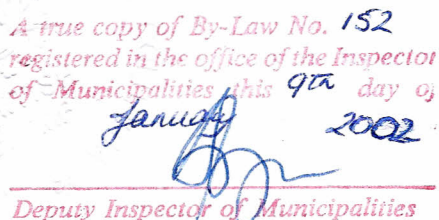 A true copy of By-Law No. 152
registered in the office of the Inspector
of Municipalities this 9th day of
January 2002
Deputy Inspector of Municipalities